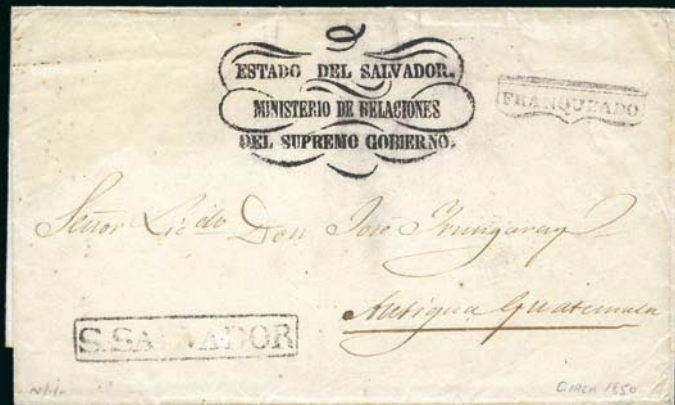 ESTADO DEL SALVADOR.
MINISTERIO DE RELACIONES
DEL SUPREMO GOBIERNO.
FRANQUEADO
Señor Licdo Don José Yrungaray
Antigua Guatemala
S.SALVADOR
CIRCA 1850